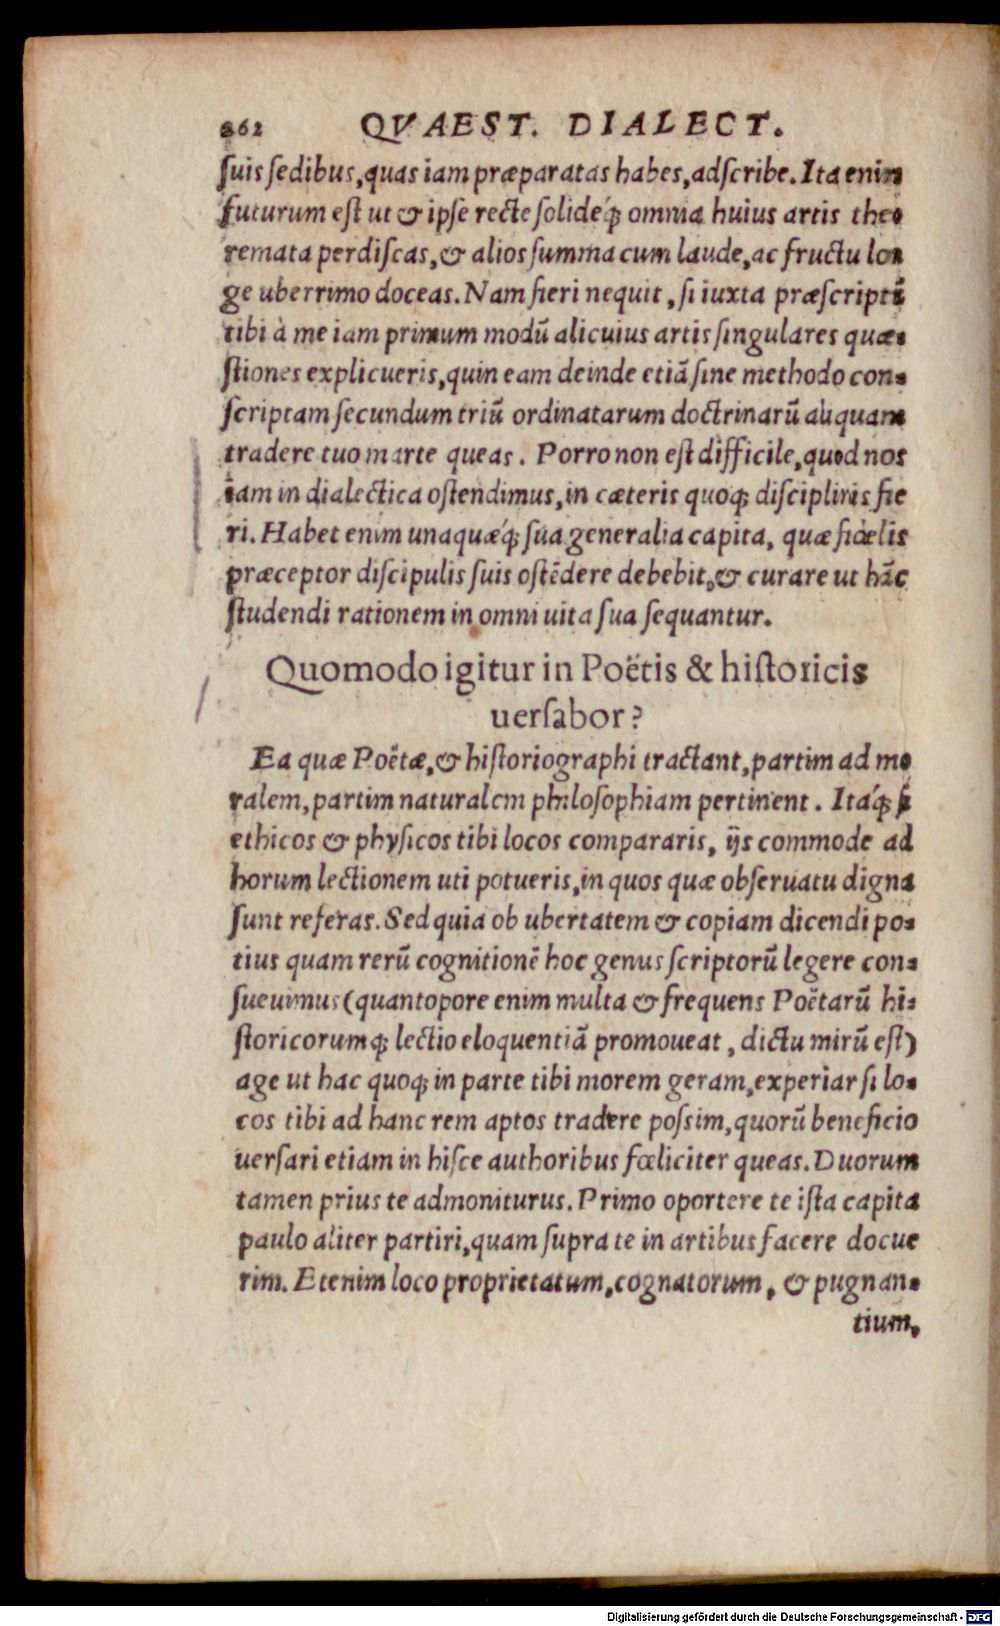 262 QVAEST. DIALECT.
ſuis ſedibus, quas iam præparatas habes, adſcribe. Ita enim
futurum eſt ut & ipſe recte ſolideq́; omnia huius artis theo
remata perdiſcas, & alios ſumma cum laude, ac fructu lon
ge uberrimo doceas. Nam fieri nequit, ſi iuxta præſcriptũ
tibi à me iam primum modũ alicuius artis ſingulares quæ-
ſtiones explicueris, quin eam deinde etiã ſine methodo con-
ſcriptam ſecundum triũ ordinatarum doctrinarũ aliquam
tradere tuo marte queas. Porro non eſt difficile, quod nos
iam in dialectica oſtendimus, in cæteris quoq; diſciplinis fie
ri. Habet enim unaquæq́; ſua generalia capita, quæ fidelis
præceptor diſcipulis ſuis oſtẽdere debebit, & curare ut hãc
ſtudendi rationem in omni uita ſua ſequantur.
Quomodo igitur in Poëtis & hiſtoricis
uerſabor?
Ea quæ Poëtæ, & hiſtoriographi tractant, partim ad mo
ralem, partim naturalem philoſophiam pertinent. Itaq́; ſi
ethicos & phyſicos tibi locos compararis, ijs commode ad
horum lectionem uti potueris, in quos quæ obſeruatu digna
ſunt referas. Sed quia ob ubertatem & copiam dicendi po-
tius quam rerũ cognitionẽ hoc genus ſcriptorũ legere con-
ſueuimus (quantopore enim multa & frequens Poëtarũ hi-
ſtoricorumq; lectio eloquentiã promoueat, dictu mirũ eſt)
age ut hac quoq; in parte tibi morem geram, experiar ſi lo-
cos tibi ad hanc rem aptos tradere poſsim, quorũ beneficio
uerſari etiam in hiſce authoribus fœliciter queas. Duorum
tamen prius te admoniturus. Primo oportere te iſta capita
paulo aliter partiri, quam ſupra te in artibus facere docue
rim. Etenim loco proprietatum, cognatorum, & pugnan-
tium,
Digitalisierung gefördert durch die Deutsche Forschungsgemeinschaft - DFG